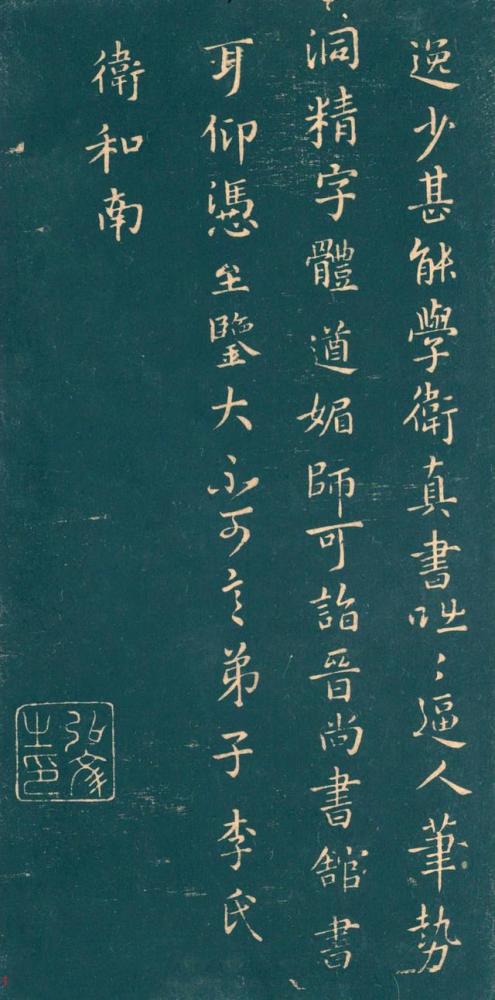 逸少甚能學衛真書咄〻逼人筆勢
洞精字體遒媚師可詣晉尚書舘書
耳仰憑至鑒大不可言弟子李氏
衛和南